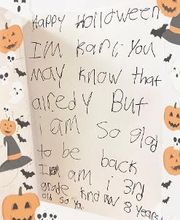 Happy Holloween
I'm Karli You
may know that
alredy But
I am so glad
to be back
I am i 3rd
grade know 8 years
old so ya